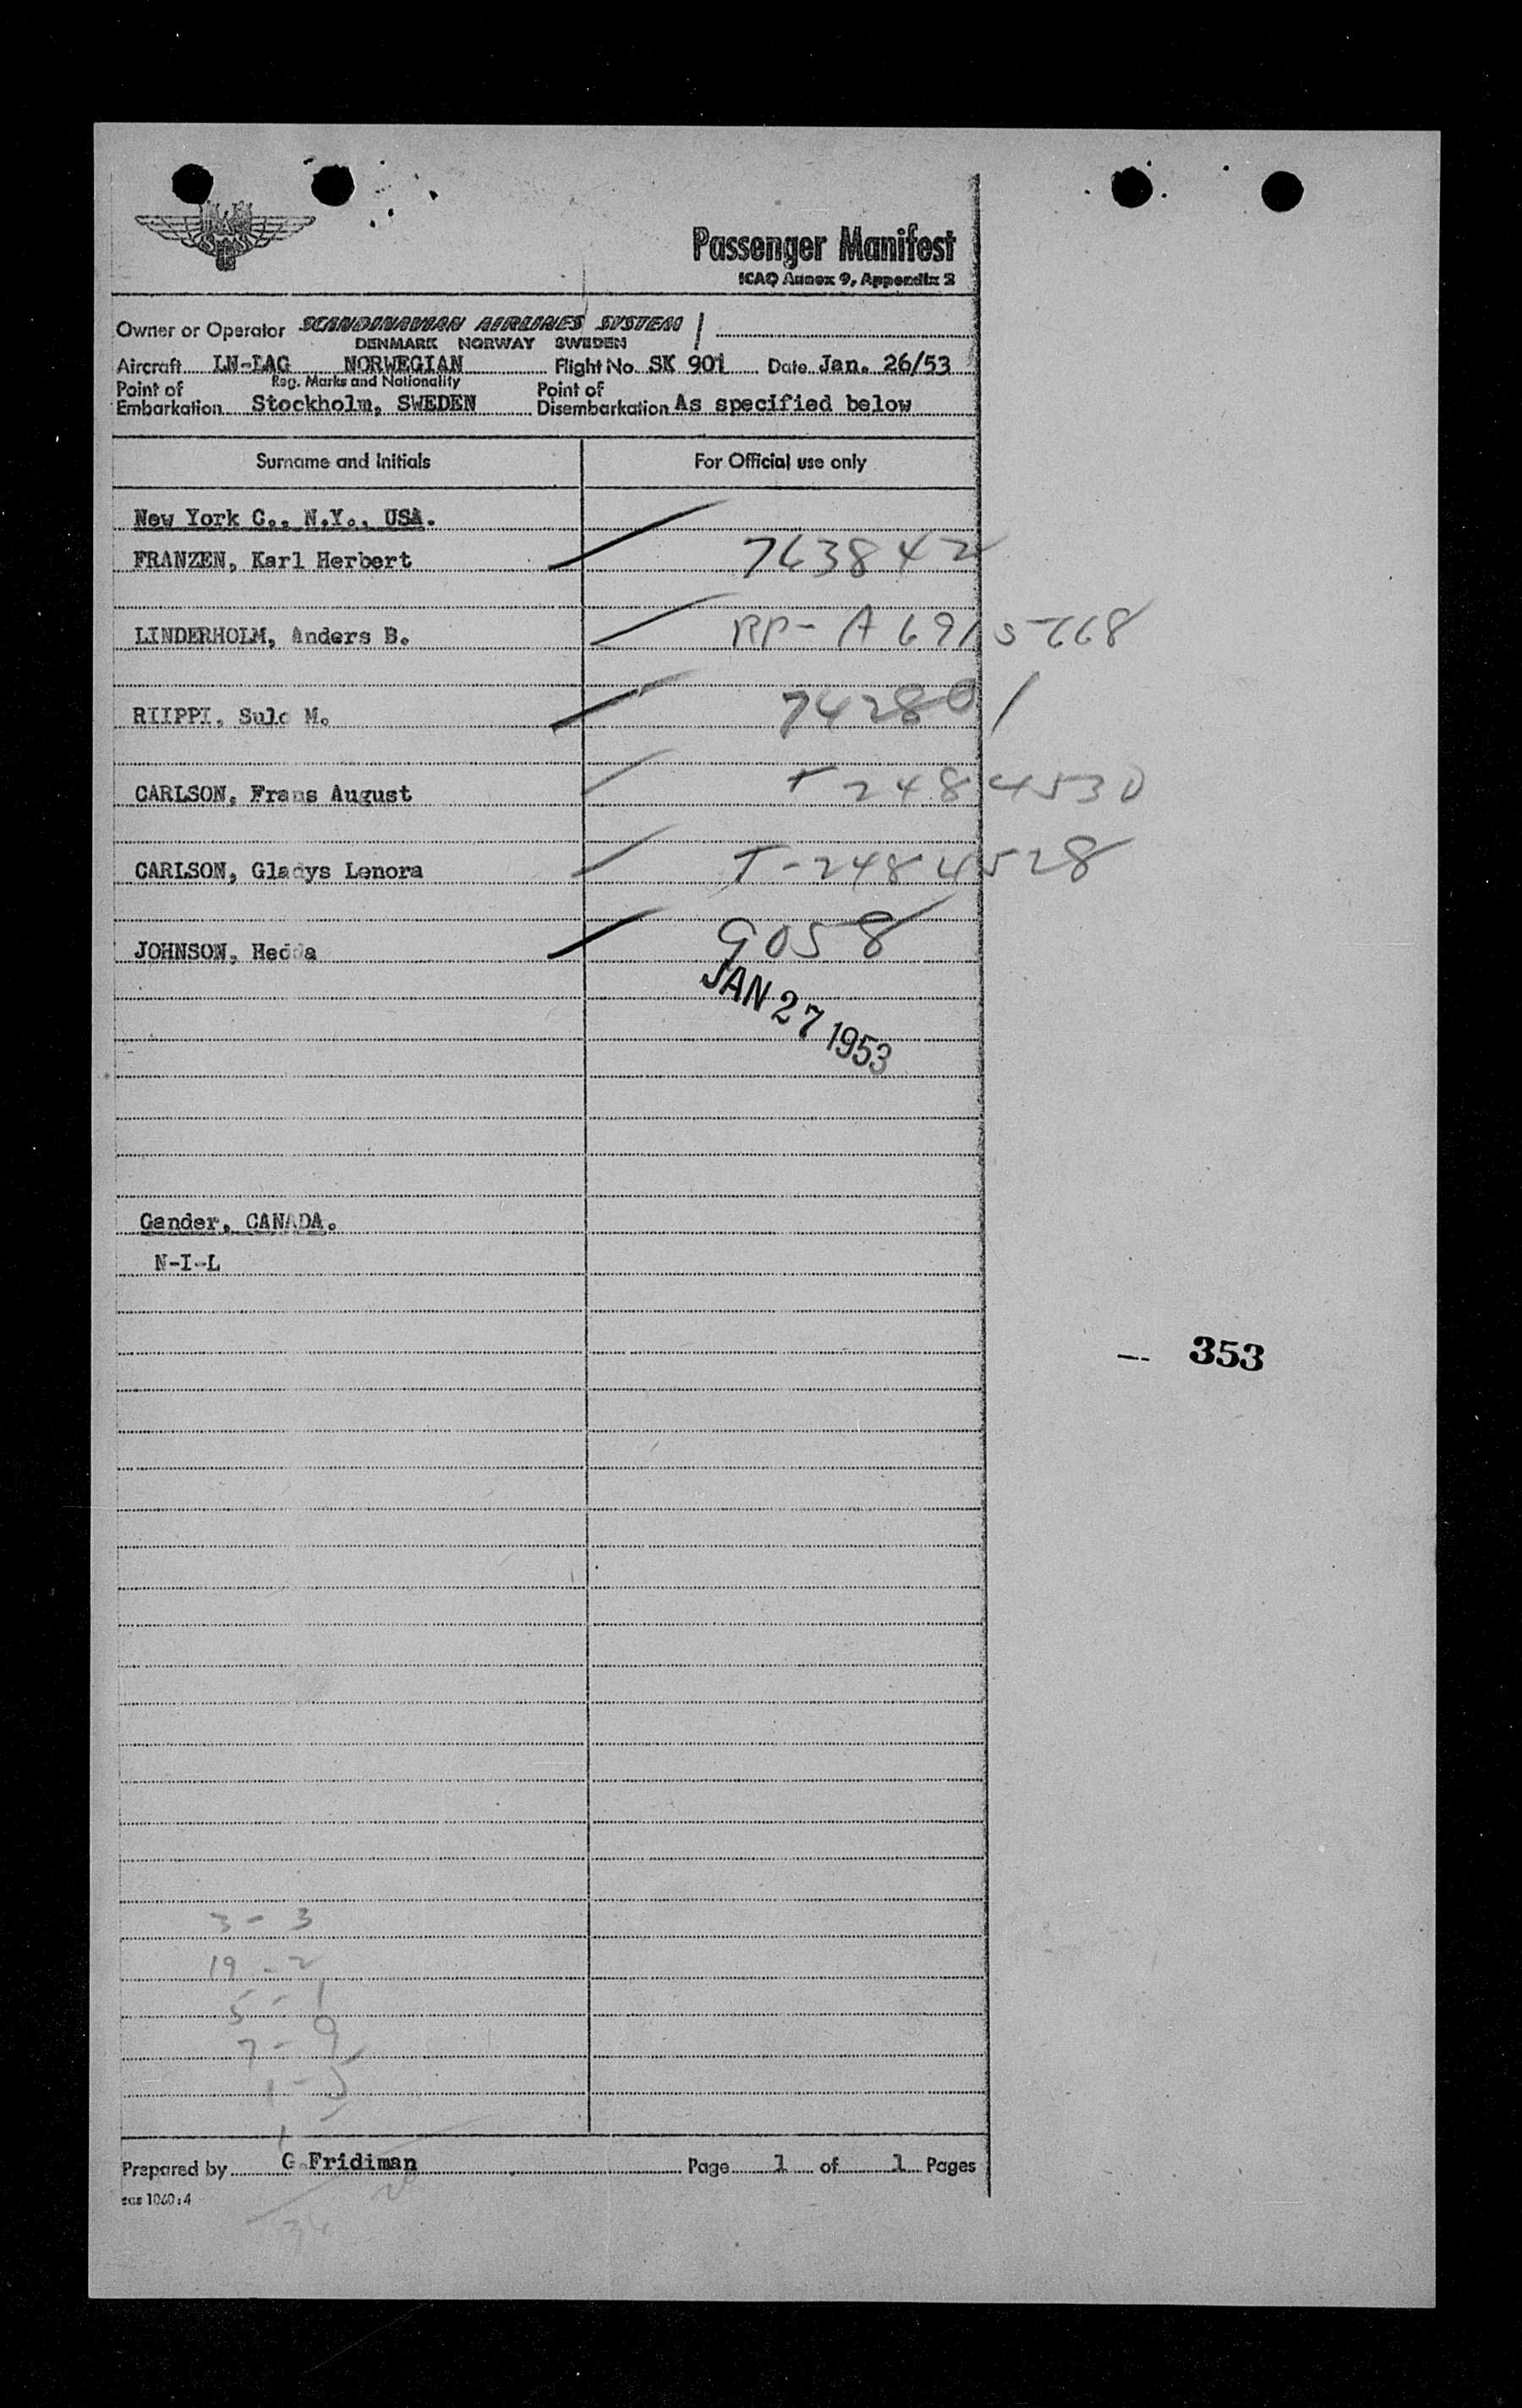 SAS
Passenger Manifest
ICAO Annex 9, Appendix 2
Owner or Operator SCANDINAVIAN AIRLINES SYSTEM /
DENMARK NORWAY SWEDEN
Aircraft LN-LAG NORWEGIAN Flight No. SK 901 Date Jan. 26/53
Reg. Marks and Nationality
Point of Embarkation Stockholm, SWEDEN Point of Disembarkation As specified below
Surname and Initials For Official use only
New York C., N.Y., USA.
FRANZEN, Karl Herbert 763842
LINDERHOLM, Anders B. RP- A 6915668
RIIPPI, Sulo M. 742801
CARLSON, Frans August T 2484530
CARLSON, Gladys Lenora T-2484528
JOHNSON, Hedda 9058
JAN 27 1953
Gander, CANADA.
N-I-L
353
3 - 3
19 - 2
5 - 1
7 - 9
1 - 5
1
Prepared by G.Fridiman Page 1 of 1 Pages
sas 1060:4
34